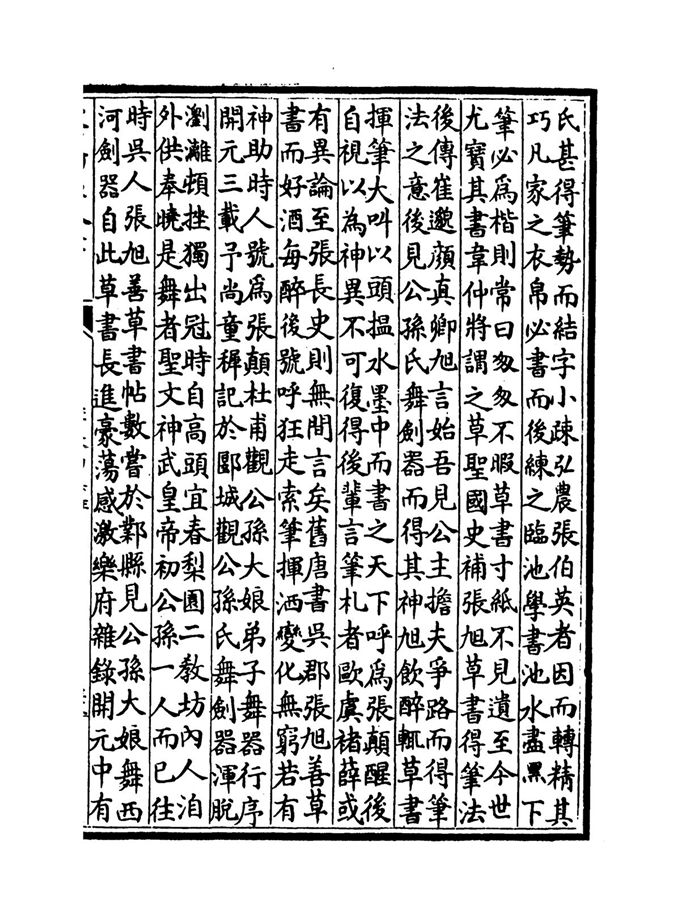 氏甚得筆勢而結字小疎弘農張伯英者因而轉精其
巧凡家之衣帛必書而後練之臨池學書池水盡黑下
筆必爲楷則常曰匆匆不暇草書寸紙不見遺至今世
尤寶其書韋仲將謂之草聖國史補張旭草書得筆法
後傳崔邈顔真卿旭言始吾見公主擔夫爭路而得筆
法之意後見公孫氏舞劍器而得其神旭飲醉輒草書
揮筆大叫以頭揾水墨中而書之天下呼爲張顛醒後
自視以為神異不可復得後輩言筆札者歐虞褚薛或
有異論至張長史則無間言矣舊唐書吳郡張旭善草
書而好酒每醉後號呼狂走索筆揮洒變化無窮若有
神助時人號爲張顛杜甫觀公孫大娘弟子舞器行序
開元三載予尚童穉記於郾城觀公孫氏舞劍器渾脫
瀏灕頓挫獨出冠時自高頭宜春梨園二教坊內人洎
外供奉曉是舞者聖文神武皇帝初公孫一人而已往
時吳人張旭善草書帖數嘗於鄴縣見公孫大娘舞西
河劍器自此草書長進豪蕩感激樂府雜錄開元中有